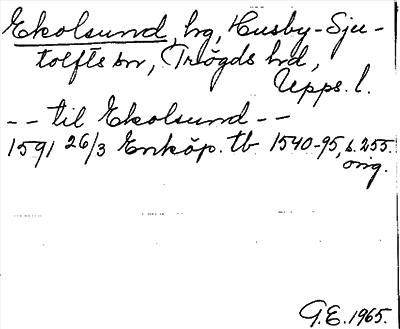 Ekolsund, hg, Husby-Sju-
tolfts sn, Trögds hd,
Upps. l.
-- til Ekolsund --
1591 26/3 Enköp. tb 1540-95, s. 255.
orig.
G.E. 1965.